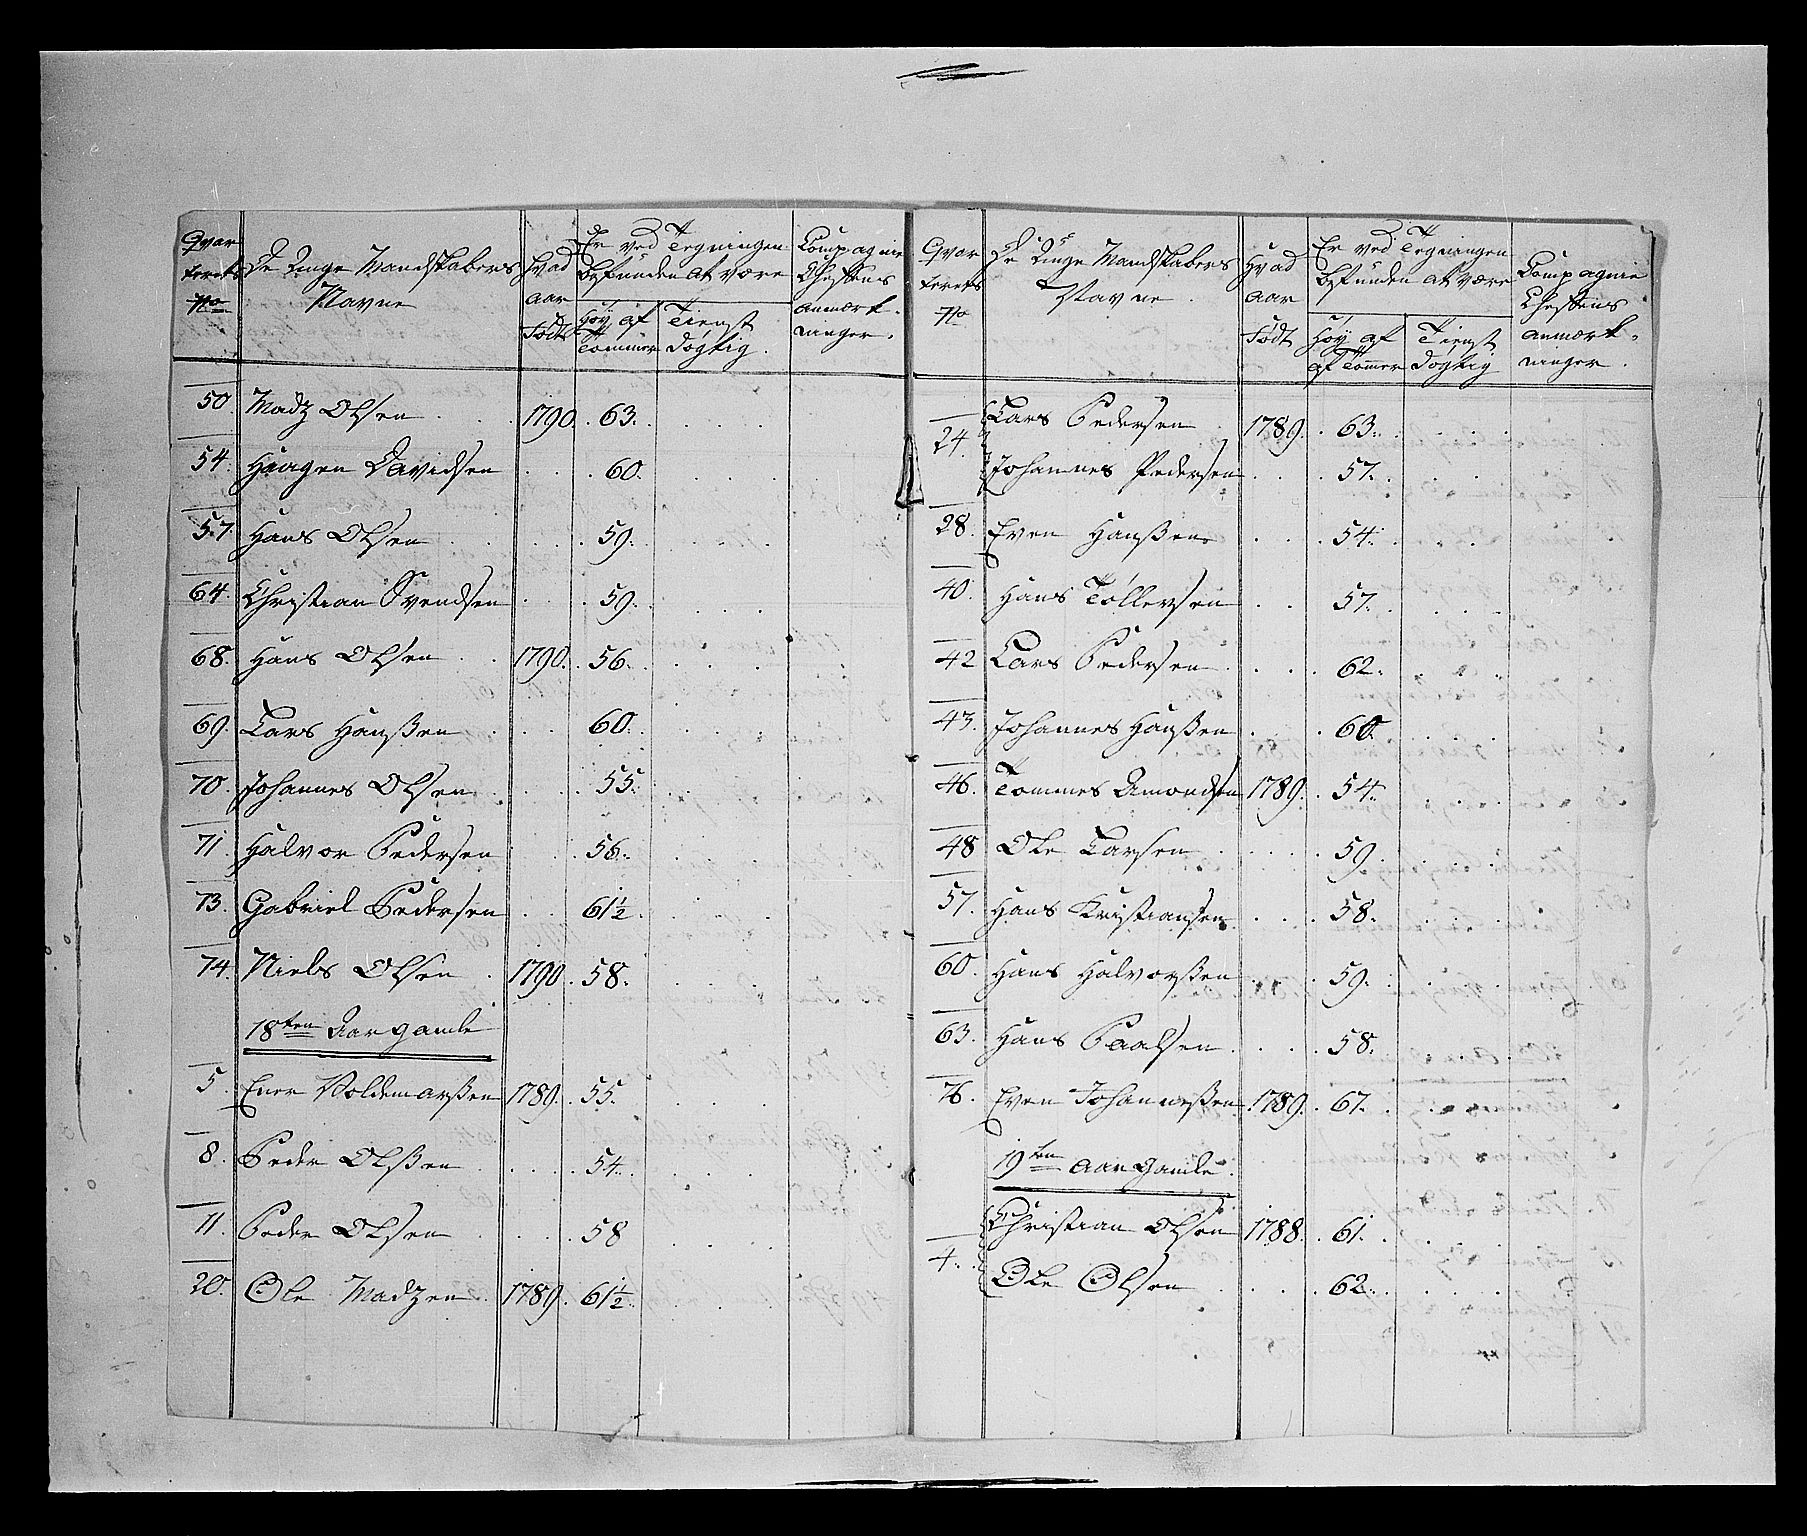 Qvar
terets
No
De Unge Mandskabers
Navne
Hvad
aar
Født
Er ved Tegningen
befunden at være
Høy af
Tommer
Tienst
dogtig.
Compagnie
Cheffens
anmærk-
ninger.
50. Madz Olsen 1790. 63.
54. Haagen Davidsen 60.
57. Hans Olsen 59.
64. Christian Svendsen 59.
68. Hans Olsen 1790. 56.
69. Lars Hanßen 60.
70. Johannes Olsen 55.
71. Halvor Pedersen 56.
73. Gabriel Pedersen 61½.
74. Niels Olsen 1790. 58.
18ten Aar gamle
5. Ener Voldemarßen 1789. 55.
8. Peder Olßen 54.
11. Peder Olsen 58
20. Ole Madzen 1789. 61½.
Qvar
terets
No
De Unge Mandskabers
Navne.
Hvad
aar
Født
Er ved Tegningen
befunden at være
Høy af
af Tomer
Tienst
dogtig
Compagnie
Cheffens
anmærk-
ninger.
24. Lars Pedersen 1789. 63.
Johannes Pedersen 57.
28. Even Hanßen 54.
40. Hans Tøllersen 57.
42 Lars Pedersen 62.
43. Johannes Hanßen 60.
46. Tommes Amondsen 1789. 54.
48 Ole Larsen 59.
57. Hans Kristiansen 58.
60. Hans Halvorßen 59.
63. Hans Paalsen 58.
76. Even Johanneßen 1789. 67.
19ten aar gamle.
4. Christian Olsen 1788. 61.
Ole Olsen 62.